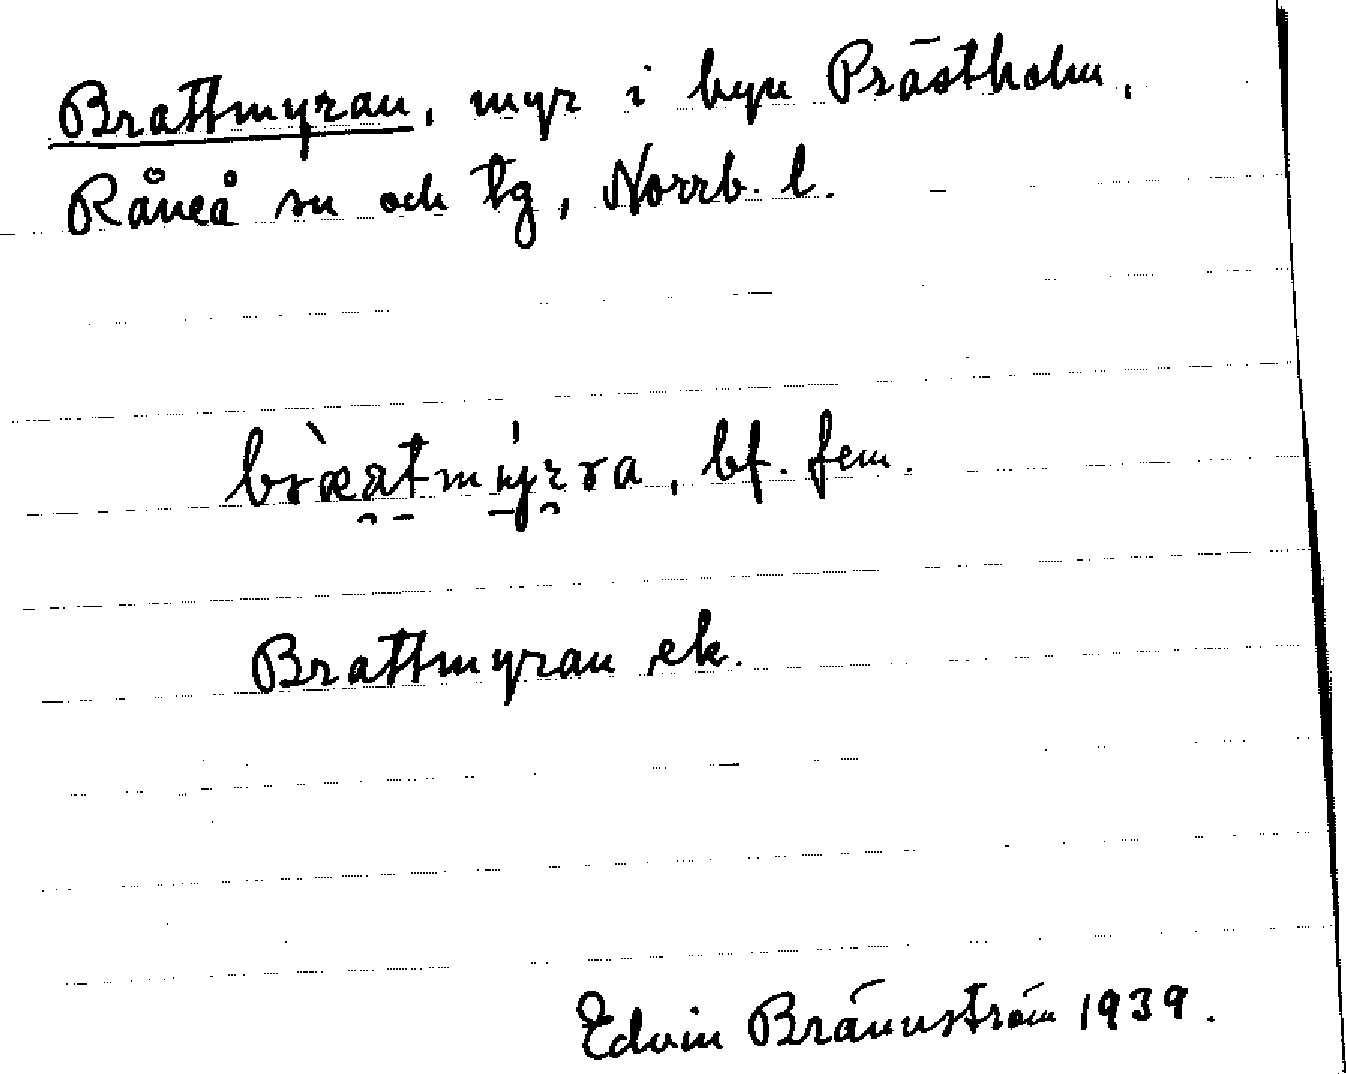 Brattmyran, myr i byn Prästholm,
Råneå sn och tg, Norrb. l.
bràatmýrra, bf. fem.
Brattmyran ek.
Edvin Brännström 1939.